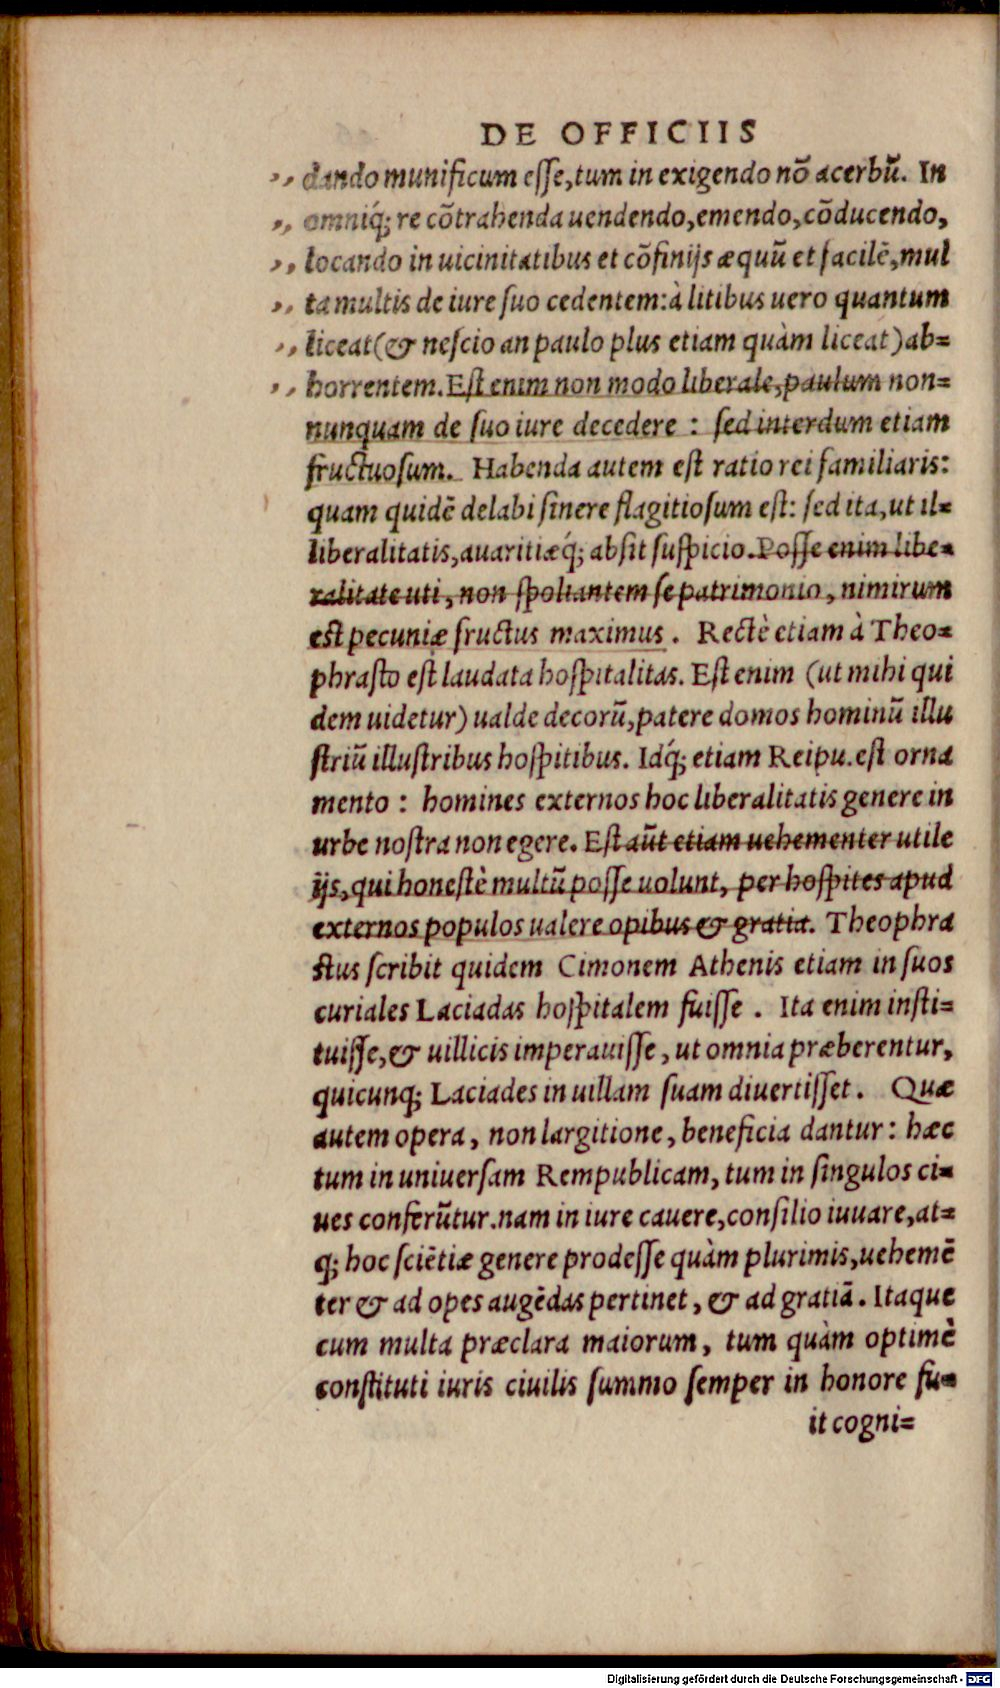 DE OFFICIIS
,, dando munificum esse, tum in exigendo nõ acerbũ. In
,, omniq́; re cõtrahenda uendendo, emendo, cõducendo,
,, locando in uicinitatibus et cõfinijs æquũ et facilẽ, mul
,, ta multis de iure suo cedentem: à litibus uero quantum
,, liceat (& nescio an paulo plus etiam quàm liceat) ab=
,, horrentem. Est enim non modo liberale, paulum non=
nunquam de suo iure decedere : sed interdum etiam
fructuosum. Habenda autem est ratio rei familiaris:
quam quidẽ delabi sinere flagitiosum est: sed ita, ut il=
liberalitatis, auaritiæq́; absit suspicio. Posse enim libe=
ralitate uti, non spoliantem se patrimonio, nimirum
est pecuniæ fructus maximus. Rectè etiam à Theo=
phrasto est laudata hospitalitas. Est enim (ut mihi qui
dem uidetur) ualde decorũ, patere domos hominũ illu
striũ illustribus hospitibus. Idq́; etiam Reipu. est orna
mento : homines externos hoc liberalitatis genere in
urbe nostra non egere. Est aũt etiam uehementer utile
ijs, qui honestè multũ posse uolunt, per hospites apud
externos populos ualere opibus & gratia. Theophra
stus scribit quidem Cimonem Athenis etiam in suos
curiales Laciadas hospitalem fuisse. Ita enim insti=
tuisse, & uillicis imperauisse, ut omnia præberentur,
quicunq; Laciades in uillam suam diuertisset. Quæ
autem opera, non largitione, beneficia dantur: hæc
tum in uniuersam Rempublicam, tum in singulos ci=
ues conferũtur. nam in iure cauere, consilio iuuare, at=
q; hoc sciẽtiæ genere prodesse quàm plurimis, uehemẽ
ter & ad opes augẽdas pertinet, & ad gratiã. Itaque
cum multa præclara maiorum, tum quàm optimè
constituti iuris ciuilis summo semper in honore fu=
it cogni=
Digitalisierung gefördert durch die Deutsche Forschungsgemeinschaft - DFG